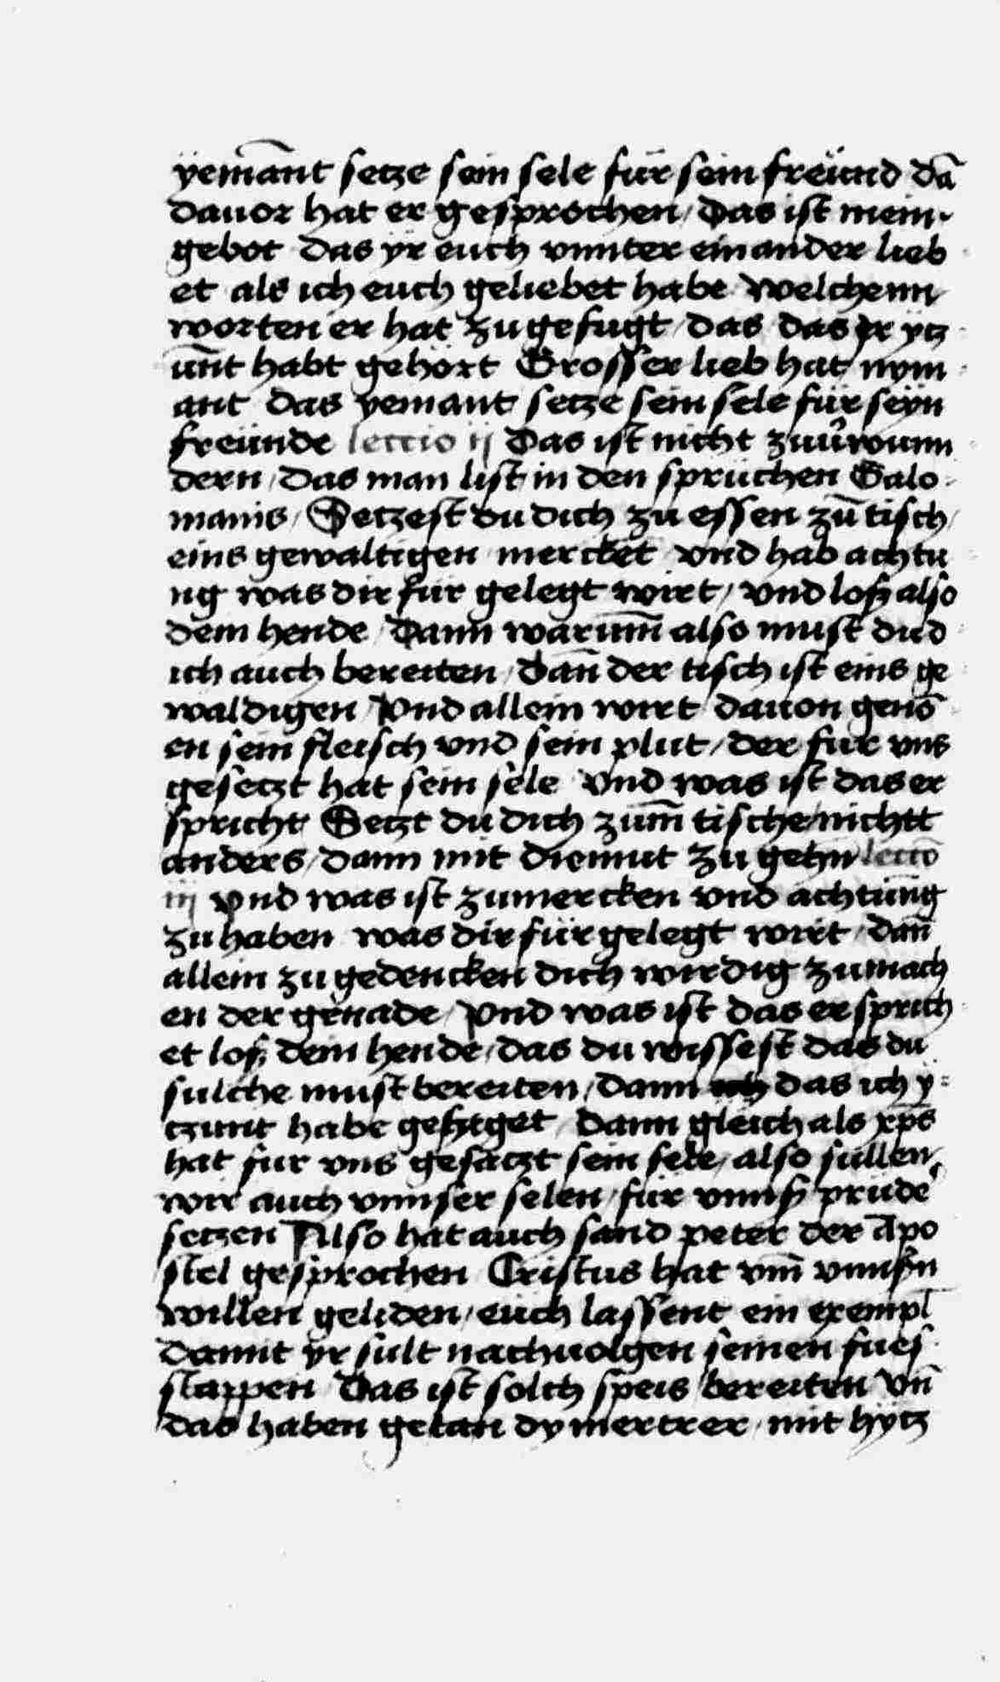 yemānt setze sein sele für sein freünd dā
dauor hat er gesprochen / Das ist mein
gebot das yr euch vnnter einander lieb
et als ich euch geliebet habe welchenn
worten er hat zu gefugt / das das yr ytz
ūnt habt gehört Grosser lieb hat nym
ant das yemant setze sein sele für seyn
freünde lectio ij Das ist nicht zuuͦwunn
dern / Das man list in den sprüchen Salo
monis / Setzest du dich zu essen zū tisch /
eins gewaltigen mercket vnd hab achtu
ng was dir für gelegt wirt / vnd loß also
dein hende / Dann warumm̄ also must du d
ich auch bereiten / Dan̄ der tisch ist eins ge
waldigen Vnd allein wirt dauon genō
en sein fleisch vnd sein plut / der für vns
gesetzt hat sein sele vnd was ist das er
spricht Setzt du dich zum̄ tische / nichtt
anders / dann mit diemut zu gehn lectō
iij Vnd was ist zumercken vnd achtūng
zu haben was dir für gelegt wirt / dan̄
allein zu gedencken dich wirdig zumach
en der genade / Vnd was ist das er sprich
et loß dein hende / das du wissest das du
sulche must bereiten / dann das ich y
tzunt habe gesetget / Dann gleich als xp̄s
hat fur vns gesatzt sein sele / also sullen
wir auch vnnser selen / für vnnß prüde
setzen Also hat auch sand peter der Apo
stel gesprochen Cristus hat vm̄ vnnsn̄
willen geliden / euch lassent ein exempl̄
damit yr sült nachuolgen seinen fues
stappen Das ist solch speis bereiten vn̄
das haben getan dy mertrer / mit hytz